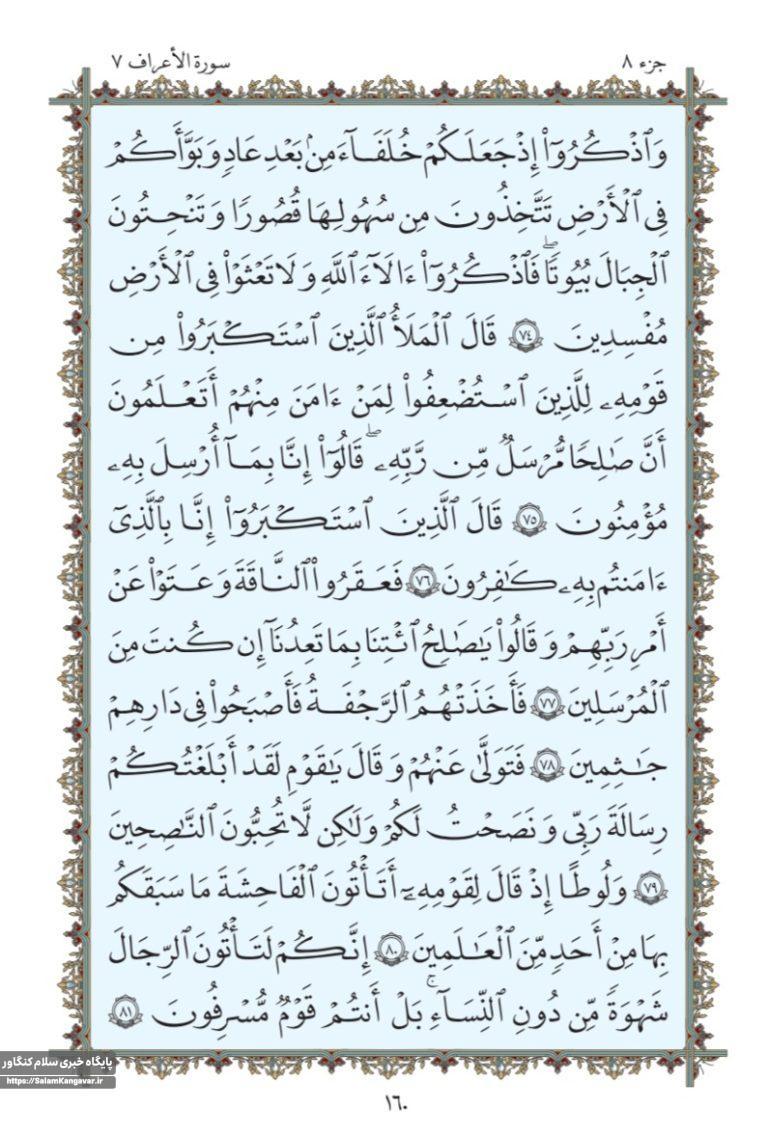 جزء ٨
سورة الأعراف ٧
وَٱذۡكُرُوٓاْ إِذۡ جَعَلَكُمۡ خُلَفَآءَ مِنۢ بَعۡدِ عَادٖ وَبَوَّأَكُمۡ
فِي ٱلۡأَرۡضِ تَتَّخِذُونَ مِن سُهُولِهَا قُصُورٗا وَتَنۡحِتُونَ
ٱلۡجِبَالَ بُيُوتٗاۖ فَٱذۡكُرُوٓاْ ءَالَآءَ ٱللَّهِ وَلَا تَعۡثَوۡاْ فِي ٱلۡأَرۡضِ
مُفۡسِدِينَ ٧٤ قَالَ ٱلۡمَلَأُ ٱلَّذِينَ ٱسۡتَكۡبَرُواْ مِن
قَوۡمِهِۦ لِلَّذِينَ ٱسۡتُضۡعِفُواْ لِمَنۡ ءَامَنَ مِنۡهُمۡ أَتَعۡلَمُونَ
أَنَّ صَٰلِحٗا مُّرۡسَلٞ مِّن رَّبِّهِۦۖ قَالُوٓاْ إِنَّا بِمَآ أُرۡسِلَ بِهِۦ
مُؤۡمِنُونَ ٧٥ قَالَ ٱلَّذِينَ ٱسۡتَكۡبَرُوٓاْ إِنَّا بِٱلَّذِيٓ
ءَامَنتُم بِهِۦ كَٰفِرُونَ ٧٦ فَعَقَرُواْ ٱلنَّاقَةَ وَعَتَوۡاْ عَنۡ
أَمۡرِ رَبِّهِمۡ وَقَالُواْ يَٰصَٰلِحُ ٱئۡتِنَا بِمَا تَعِدُنَآ إِن كُنتَ مِنَ
ٱلۡمُرۡسَلِينَ ٧٧ فَأَخَذَتۡهُمُ ٱلرَّجۡفَةُ فَأَصۡبَحُواْ فِي دَارِهِمۡ
جَٰثِمِينَ ٧٨ فَتَوَلَّىٰ عَنۡهُمۡ وَقَالَ يَٰقَوۡمِ لَقَدۡ أَبۡلَغۡتُكُمۡ
رِسَالَةَ رَبِّي وَنَصَحۡتُ لَكُمۡ وَلَٰكِن لَّا تُحِبُّونَ ٱلنَّٰصِحِينَ
٧٩ وَلُوطًا إِذۡ قَالَ لِقَوۡمِهِۦٓ أَتَأۡتُونَ ٱلۡفَٰحِشَةَ مَا سَبَقَكُم
بِهَا مِنۡ أَحَدٖ مِّنَ ٱلۡعَٰلَمِينَ ٨٠ إِنَّكُمۡ لَتَأۡتُونَ ٱلرِّجَالَ
شَهۡوَةٗ مِّن دُونِ ٱلنِّسَآءِۚ بَلۡ أَنتُمۡ قَوۡمٞ مُّسۡرِفُونَ ٨١
پایگاه خبری سلام کنگاور
https://SalamKangavar.ir
١٦٠